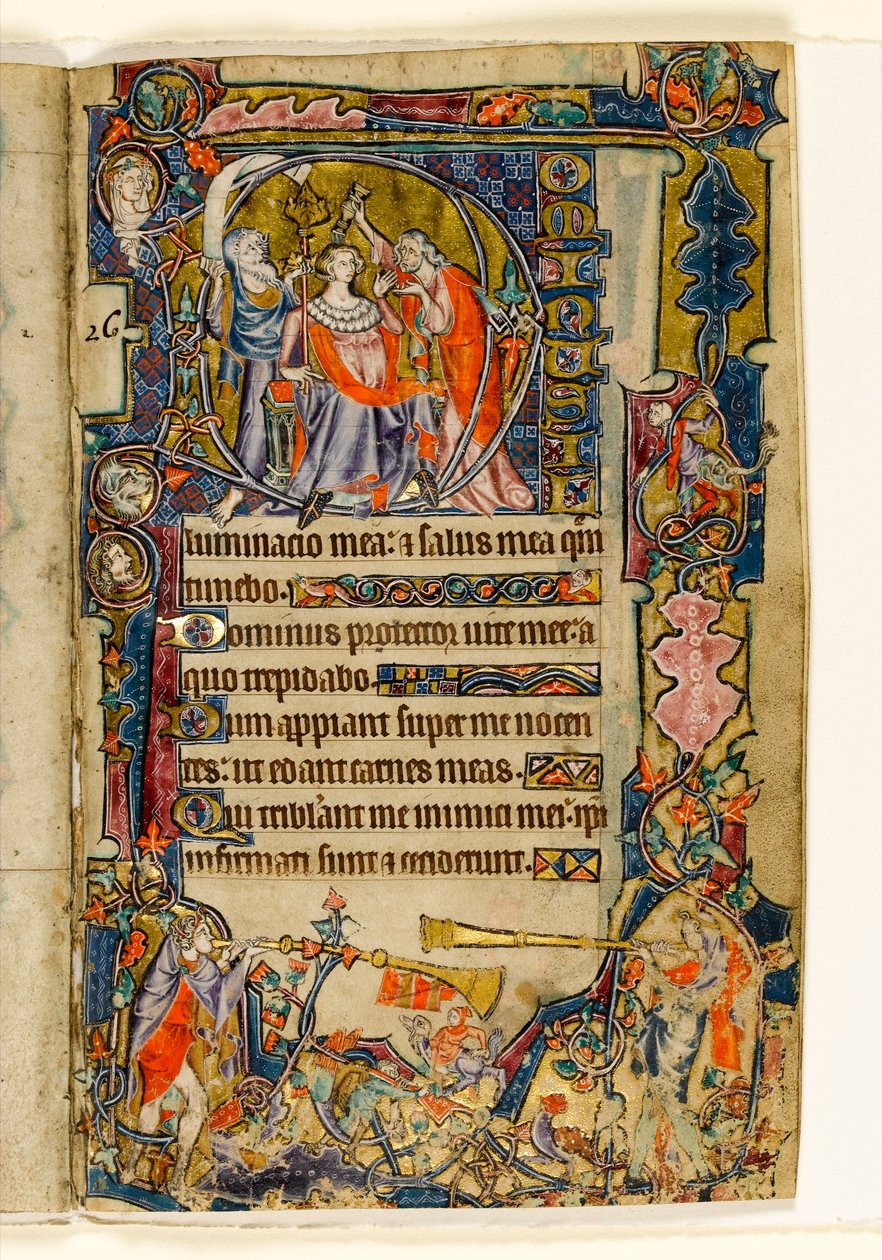 26
DOMINUS IL
luminacio mea: ⁊ salus mea qm̄
timebo.
Dominus protector uite mee: a
quo trepidabo.
Dum appiant super me nocen
tes: ut edant carnes meas.
Qui tribl'ant me inimici mei: ip̄i
infirmati sunt ⁊ ceciderunt.